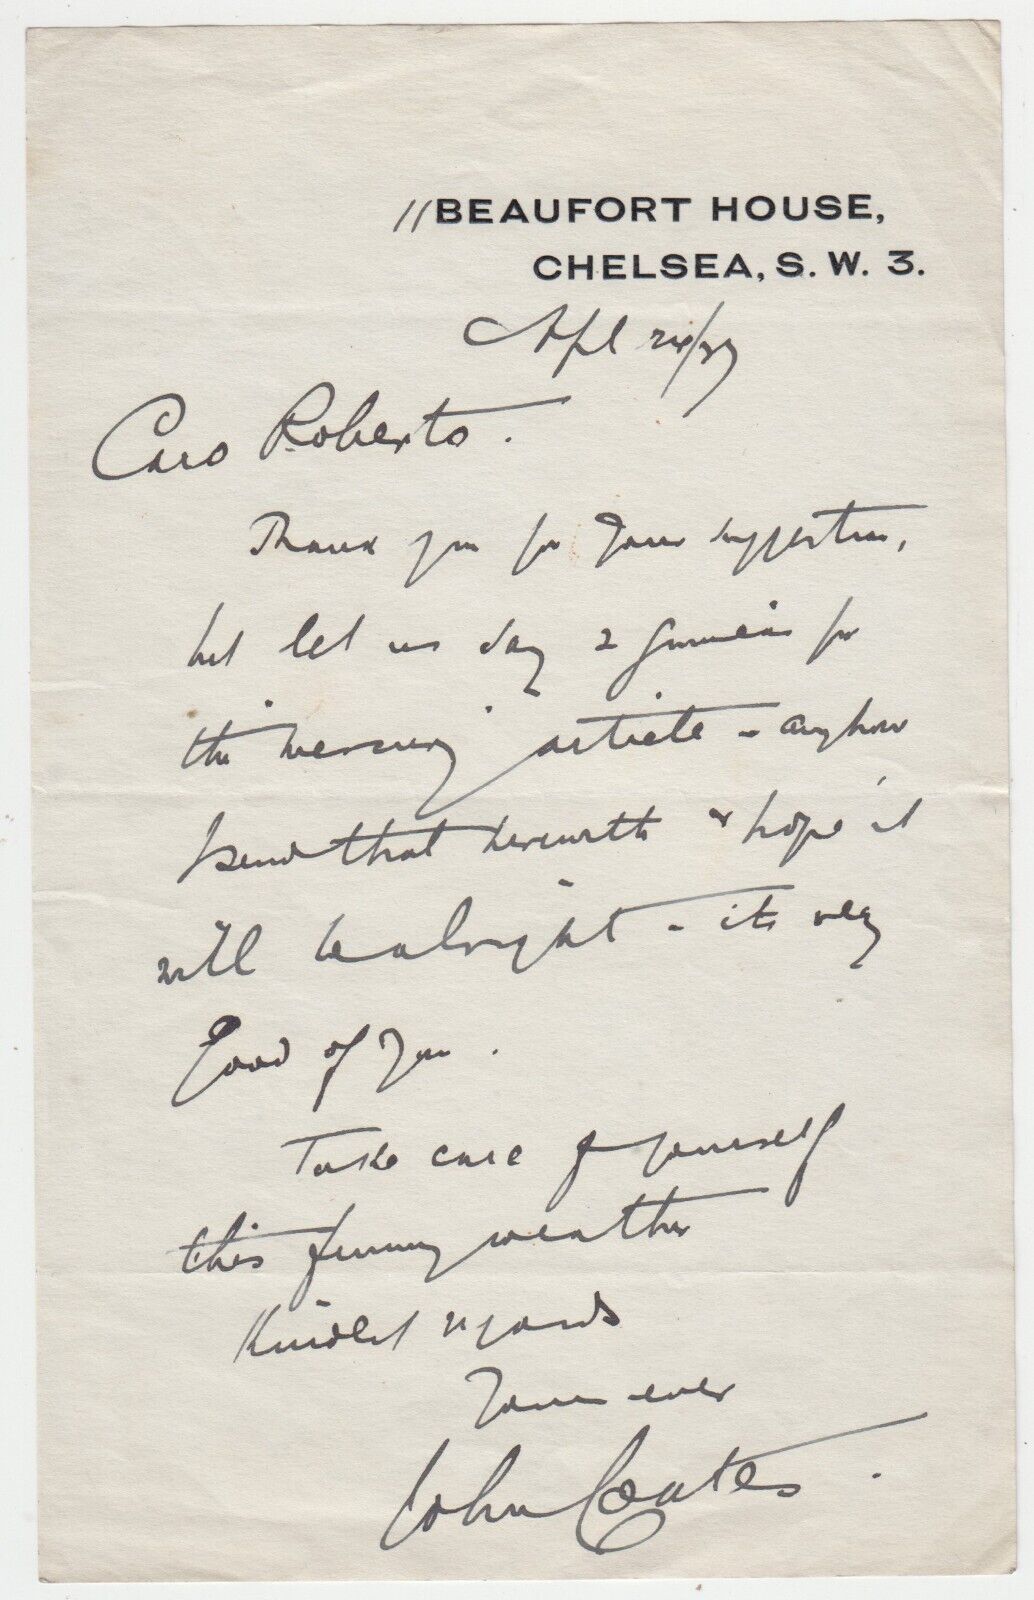 11 BEAUFORT HOUSE,
CHELSEA, S. W. 3.
Apl 24/37
Caro Roberto.
Thank you for your suggestion,
but let us say 2 guineas for
the "Mercury" article - anyhow
I send that herewith & hope it
will be alright - its very
Good of you.
Take care of yourself
this funny weather
Kindest regards
Yours ever
John Coates.